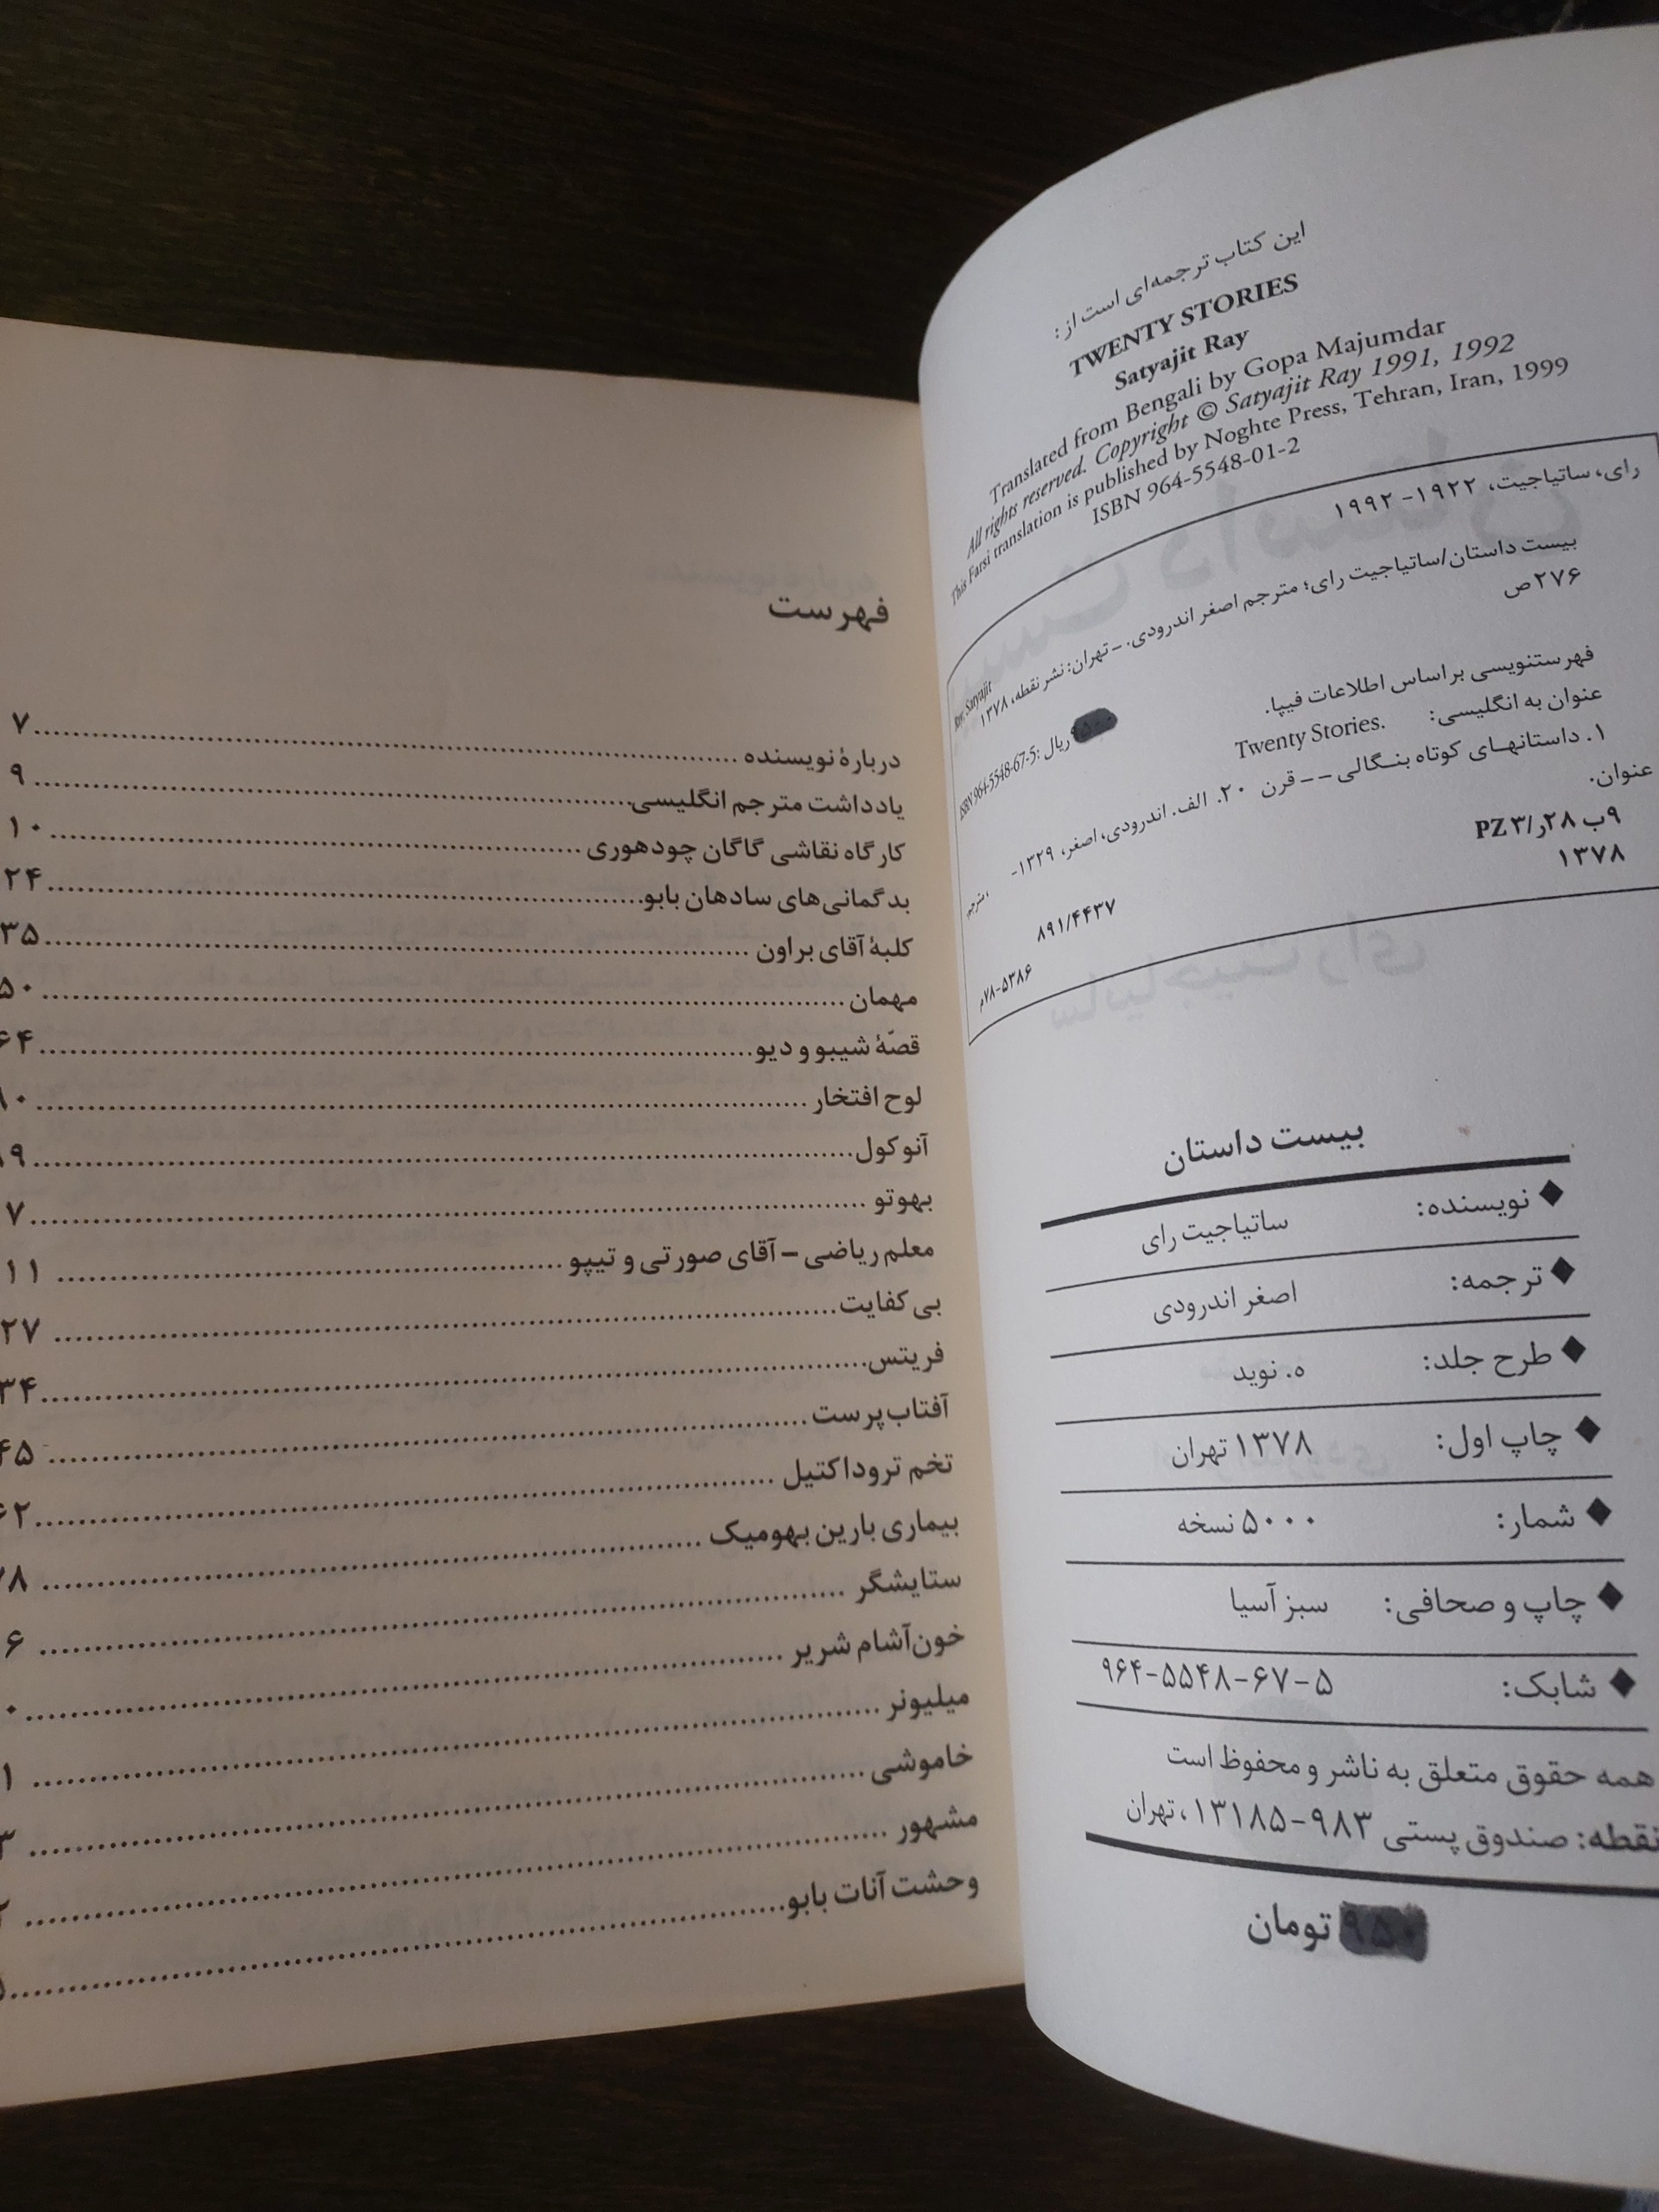 این کتاب ترجمه‌ای است از:
TWENTY STORIES
Satyajit Ray
Translated from Bengali by Gopa Majumdar
All rights reserved. Copyright © Satyajit Ray 1991, 1992
This Farsi translation is published by Noghte Press, Tehran, Iran, 1999
ISBN 964-5548-01-2
رای، ساتیاجیت، ۱۹۲۲-۱۹۹۲
بیست داستان/ساتیاجیت رای؛ مترجم اصغر اندرودی. – تهران: نشر نقطه، ۱۳۷۸
۲۷۶ص
Ray, Satyajit
ریال: ISBN 964-5548-67-5
فهرستنویسی براساس اطلاعات فیپا.
عنوان به انگلیسی: Twenty Stories.
۱. داستانهای کوتاه بنگالی -- قرن ۲۰. الف. اندرودی، اصغر، ۱۳۲۹- ، مترجم.
عنوان.
۹ب ۲۸ر/۳ PZ
۱۳۷۸
۸۹۱/۴۴۳۷
۷۸-۵۳۸۶م
بیست داستان
◆ نویسنده: ساتیاجیت رای
◆ ترجمه: اصغر اندرودی
◆ طرح جلد: ه. نوید
◆ چاپ اول: ۱۳۷۸ تهران
◆ شمار: ۵۰۰۰ نسخه
◆ چاپ و صحافی: سبز آسیا
◆ شابک: ۹۶۴-۵۵۴۸-۶۷-۵
همه حقوق متعلق به ناشر و محفوظ است
نقطه: صندوق پستی ۹۸۳-۱۳۱۸۵، تهران
۹۵۰ تومان
فهرست
دربارهٔ نویسنده ۷
یادداشت مترجم انگلیسی ۹
کارگاه نقاشی گاگان چودهوری ۱۰
بدگمانی‌های سادهان بابو ۲۴
کلبهٔ آقای براون ۳۵
مهمان ۵۰
قصّهٔ شیبو و دیو ۶۴
لوح افتخار
آنوکول
بهوتو
معلم ریاضی – آقای صورتی و تیپو
بی کفایت
فریتس
آفتاب‌پرست
تخم تروداکتیل
بیماری بارین بهومیک
ستایشگر
خون‌آشام شریر
میلیونر
خاموشی
مشهور
وحشت آنات بابو